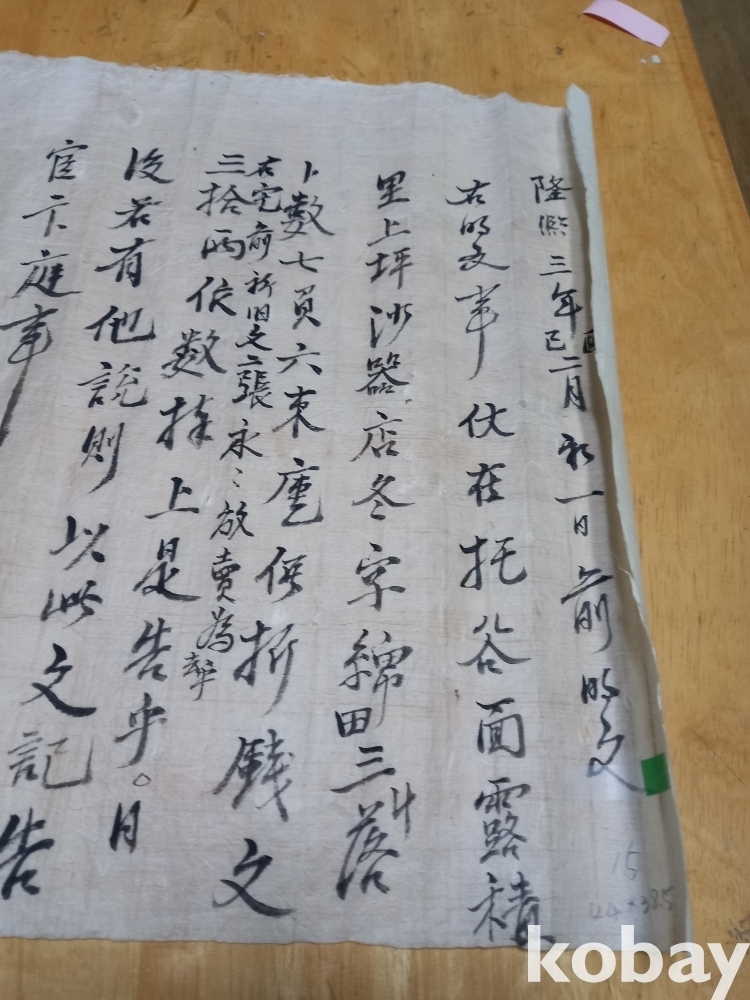 隆熙三年己酉二月初一日前明文
右明文事伏在托谷面露積
里上坪沙器店冬字綿田三斗落
卜數七負六束庫価折錢文
三拾兩依數捧上是告乎
右宅前新旧文二張永〻放賣為乎
○月
後若有他說則以此文記告
官卞庭事
15
44 + 38.5
kobay